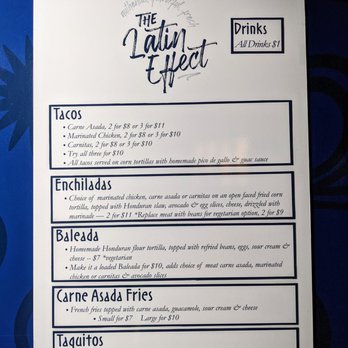 THE
Latin
Effect
Drinks
All Drinks $1
Tacos
• Carne Asada, 2 for $8 or 3 for $11
• Marinated Chicken, 2 for $8 or 3 for $10
• Carnitas, 2 for $8 or 3 for $10
• Try all three for $10
• All tacos served on corn tortillas with homemade pico de gallo & guac sauce
Enchiladas
• Choice of marinated chicken, carne asada or carnitas on an open faced fried corn
tortilla, topped with Honduran slaw, avocado & egg slices, cheese, drizzled with
marinade — 2 for $11 *Replace meat with beans for vegetarian option, 2 for $9
Baleada
• Homemade Honduran flour tortilla, topped with refried beans, eggs, sour cream &
cheese – $7 *vegetarian
• Make it a loaded Baleada for $10, adds choice of meat carne asada, marinated
chicken or carnitas & avocado slices
Carne Asada Fries
• French fries topped with carne asada, guacamole, sour cream & cheese
• Small for $7 Large for $10
Taquitos